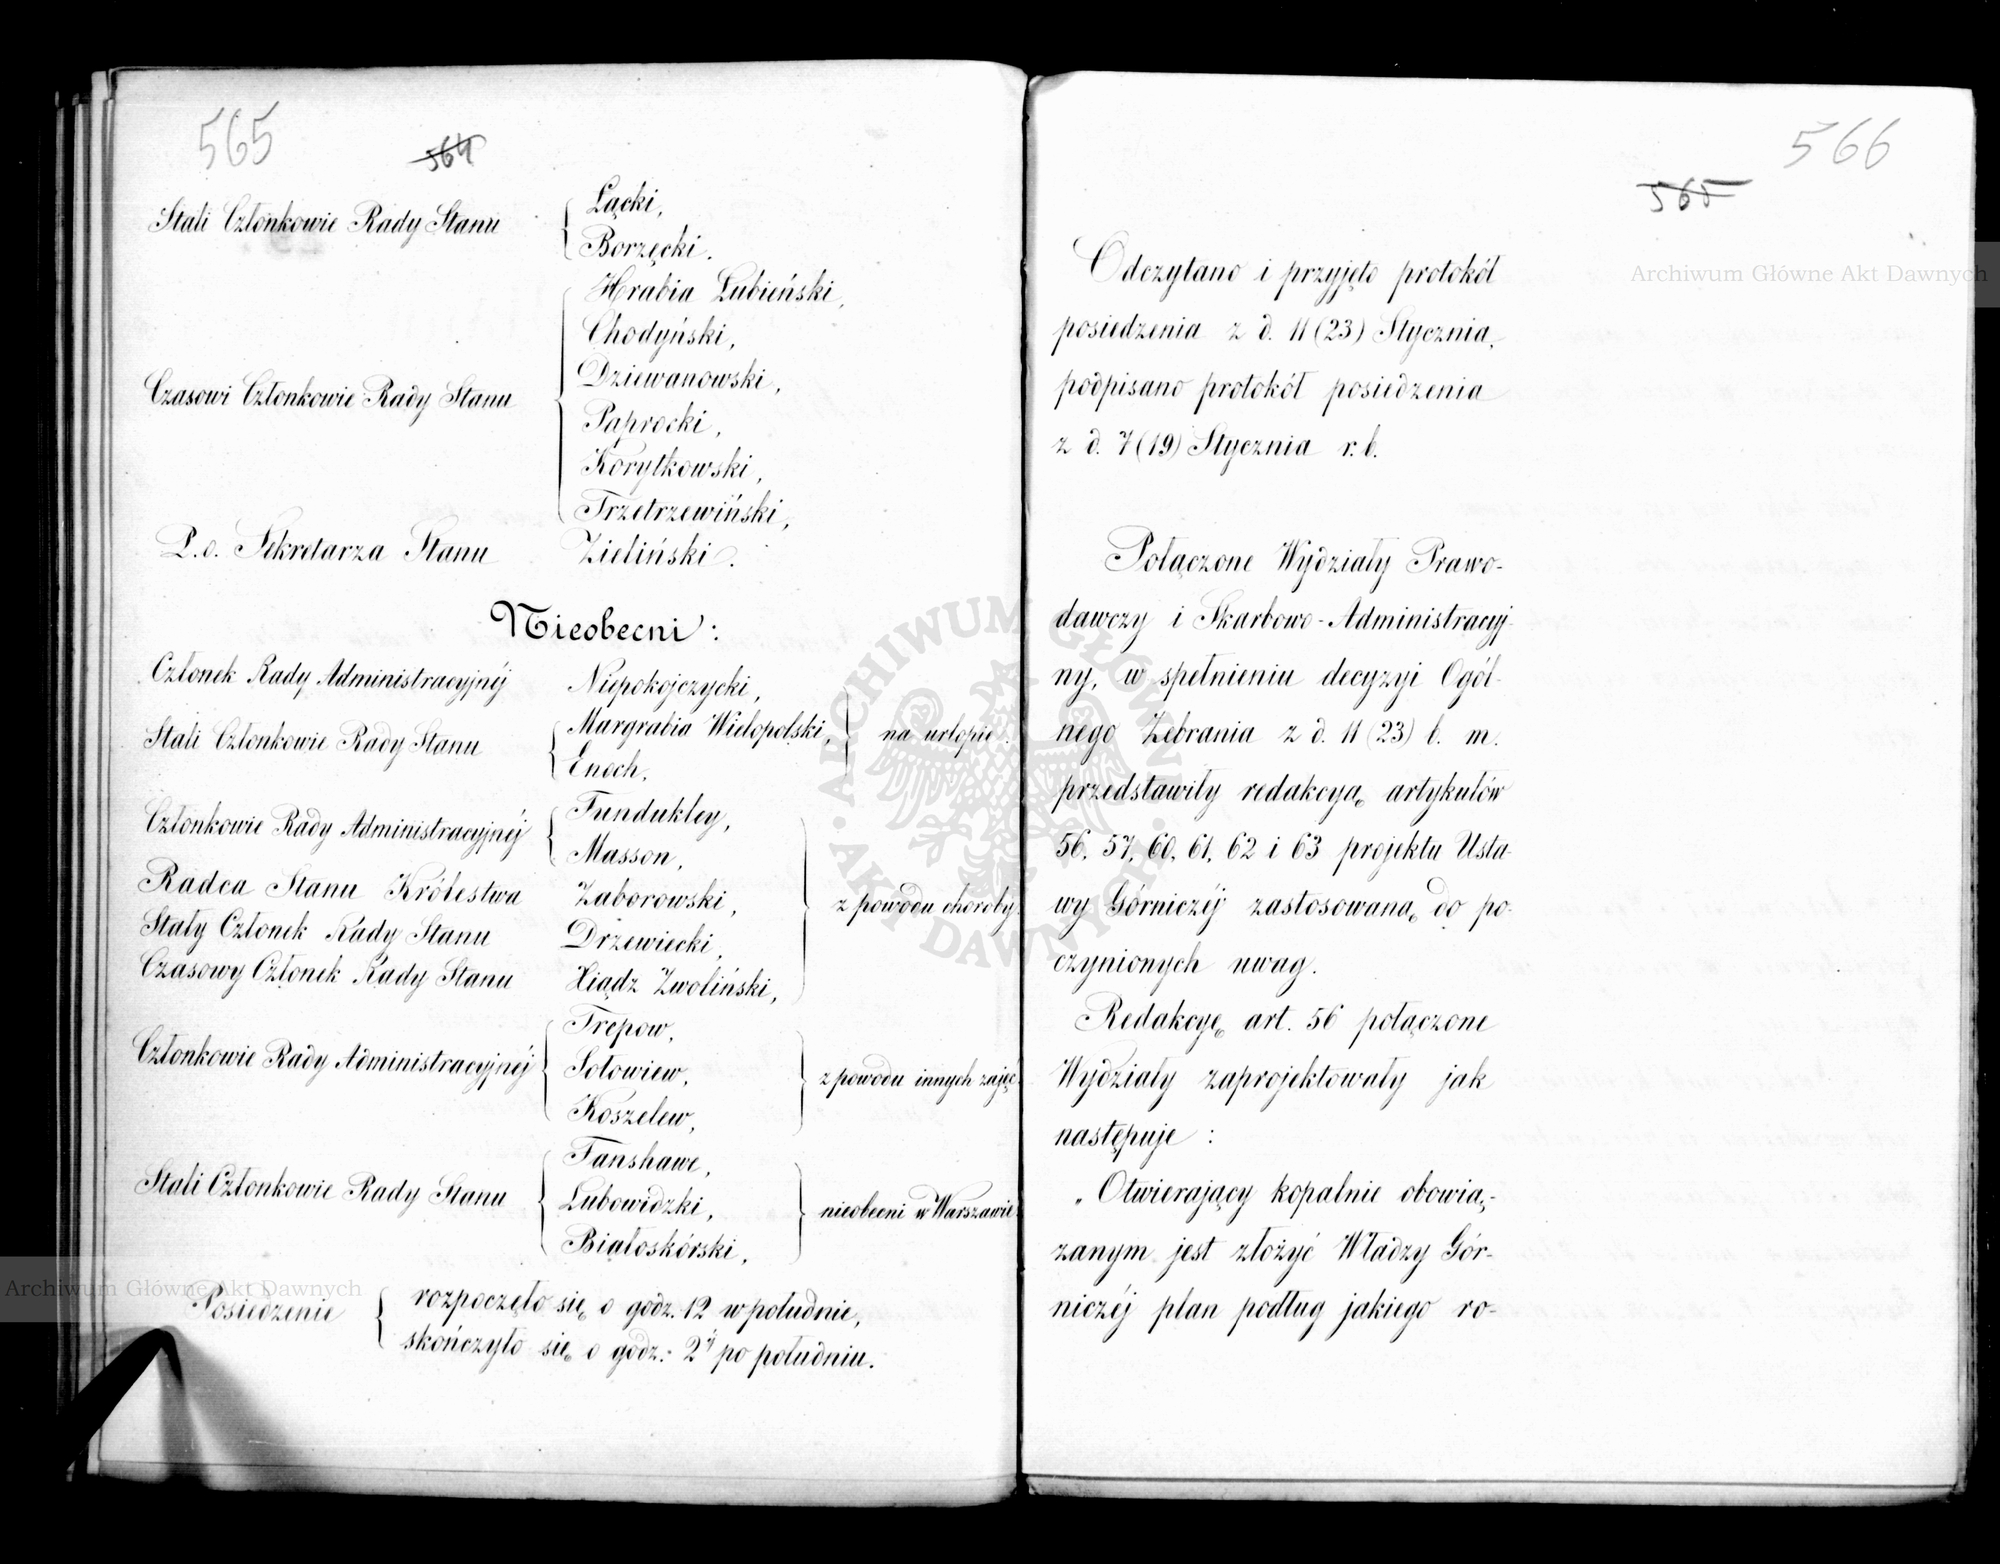 565
564
Stali Członkowie Rady Stanu
Łącki,
Borzęcki.
Czasowi Członkowie Rady Stanu
Hrabia Łubieński,
Chodyński,
Dziewanowski,
Paprocki,
Korytkowski,
Trzetrzewiński,
P.o. Sekretarza Stanu Zieliński.
Nieobecni:
Członek Rady Administracyjnéj Niepokojczycki,
Stali Członkowie Rady Stanu
Margrabia Wielopolski,
Enoch,
na urlopie.
Członkowie Rady Administracyjnéj
Fundukley,
Masson,
Radca Stanu Królestwa Zaborowski,
Stały Członek Rady Stanu Drzewiecki,
Czasowy Członek Rady Stanu Xiądz Zwoliński,
z powodu choroby.
Członkowie Rady Administracyjnéj
Trepow,
Sołowiew,
Koszelew,
z powodu innych zajęć
Stali Członkowie Rady Stanu
Fanshawe,
Lubowidzki,
Białoskórski,
nieobecni w Warszawie.
Posiedzenie
rozpoczęło się o godz. 12 w południe,
skończyło się o godz: 2éj po południu.
566
565
Odczytano i przyjęto protokół
posiedzenia z d. 11 (23) Stycznia,
podpisano protokół posiedzenia
z d. 7 (19) Stycznia r. b.
Połączone Wydziały Prawo-
dawczy i Skarbowo-Administracyj-
ny, w spełnieniu decyzyi Ogól-
nego Zebrania z d. 11 (23) b. m.
przedstawiły redakcyą artykułów
56, 57, 60, 61, 62 i 63 projektu Usta-
wy Górniczéj zastosowaną do po-
czynionych uwag.
Redakcyę art. 56 połączone
Wydziały zaprojektowały jak
następuje:
„Otwierający kopalnie obowią-
zanym jest złożyć Władzy Gór-
niczéj plan podług jakiego ro-
Archiwum Główne Akt Dawnych
Archiwum Główne Akt Dawnych
ARCHIWUM GŁÓWNE AKT DAWNYCH